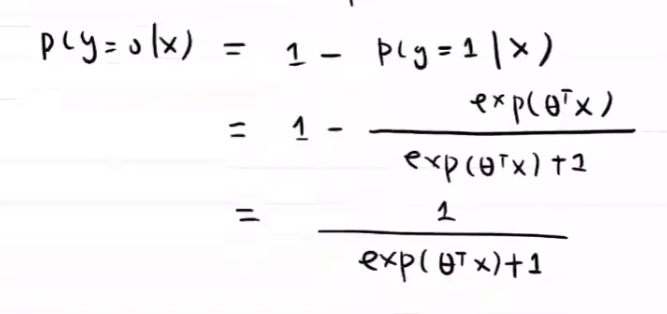 p(y=0|x) = 1 - p(y=1|x)
= 1 - exp(θᵀx) / exp(θᵀx)+1
= 1 / exp(θᵀx)+1